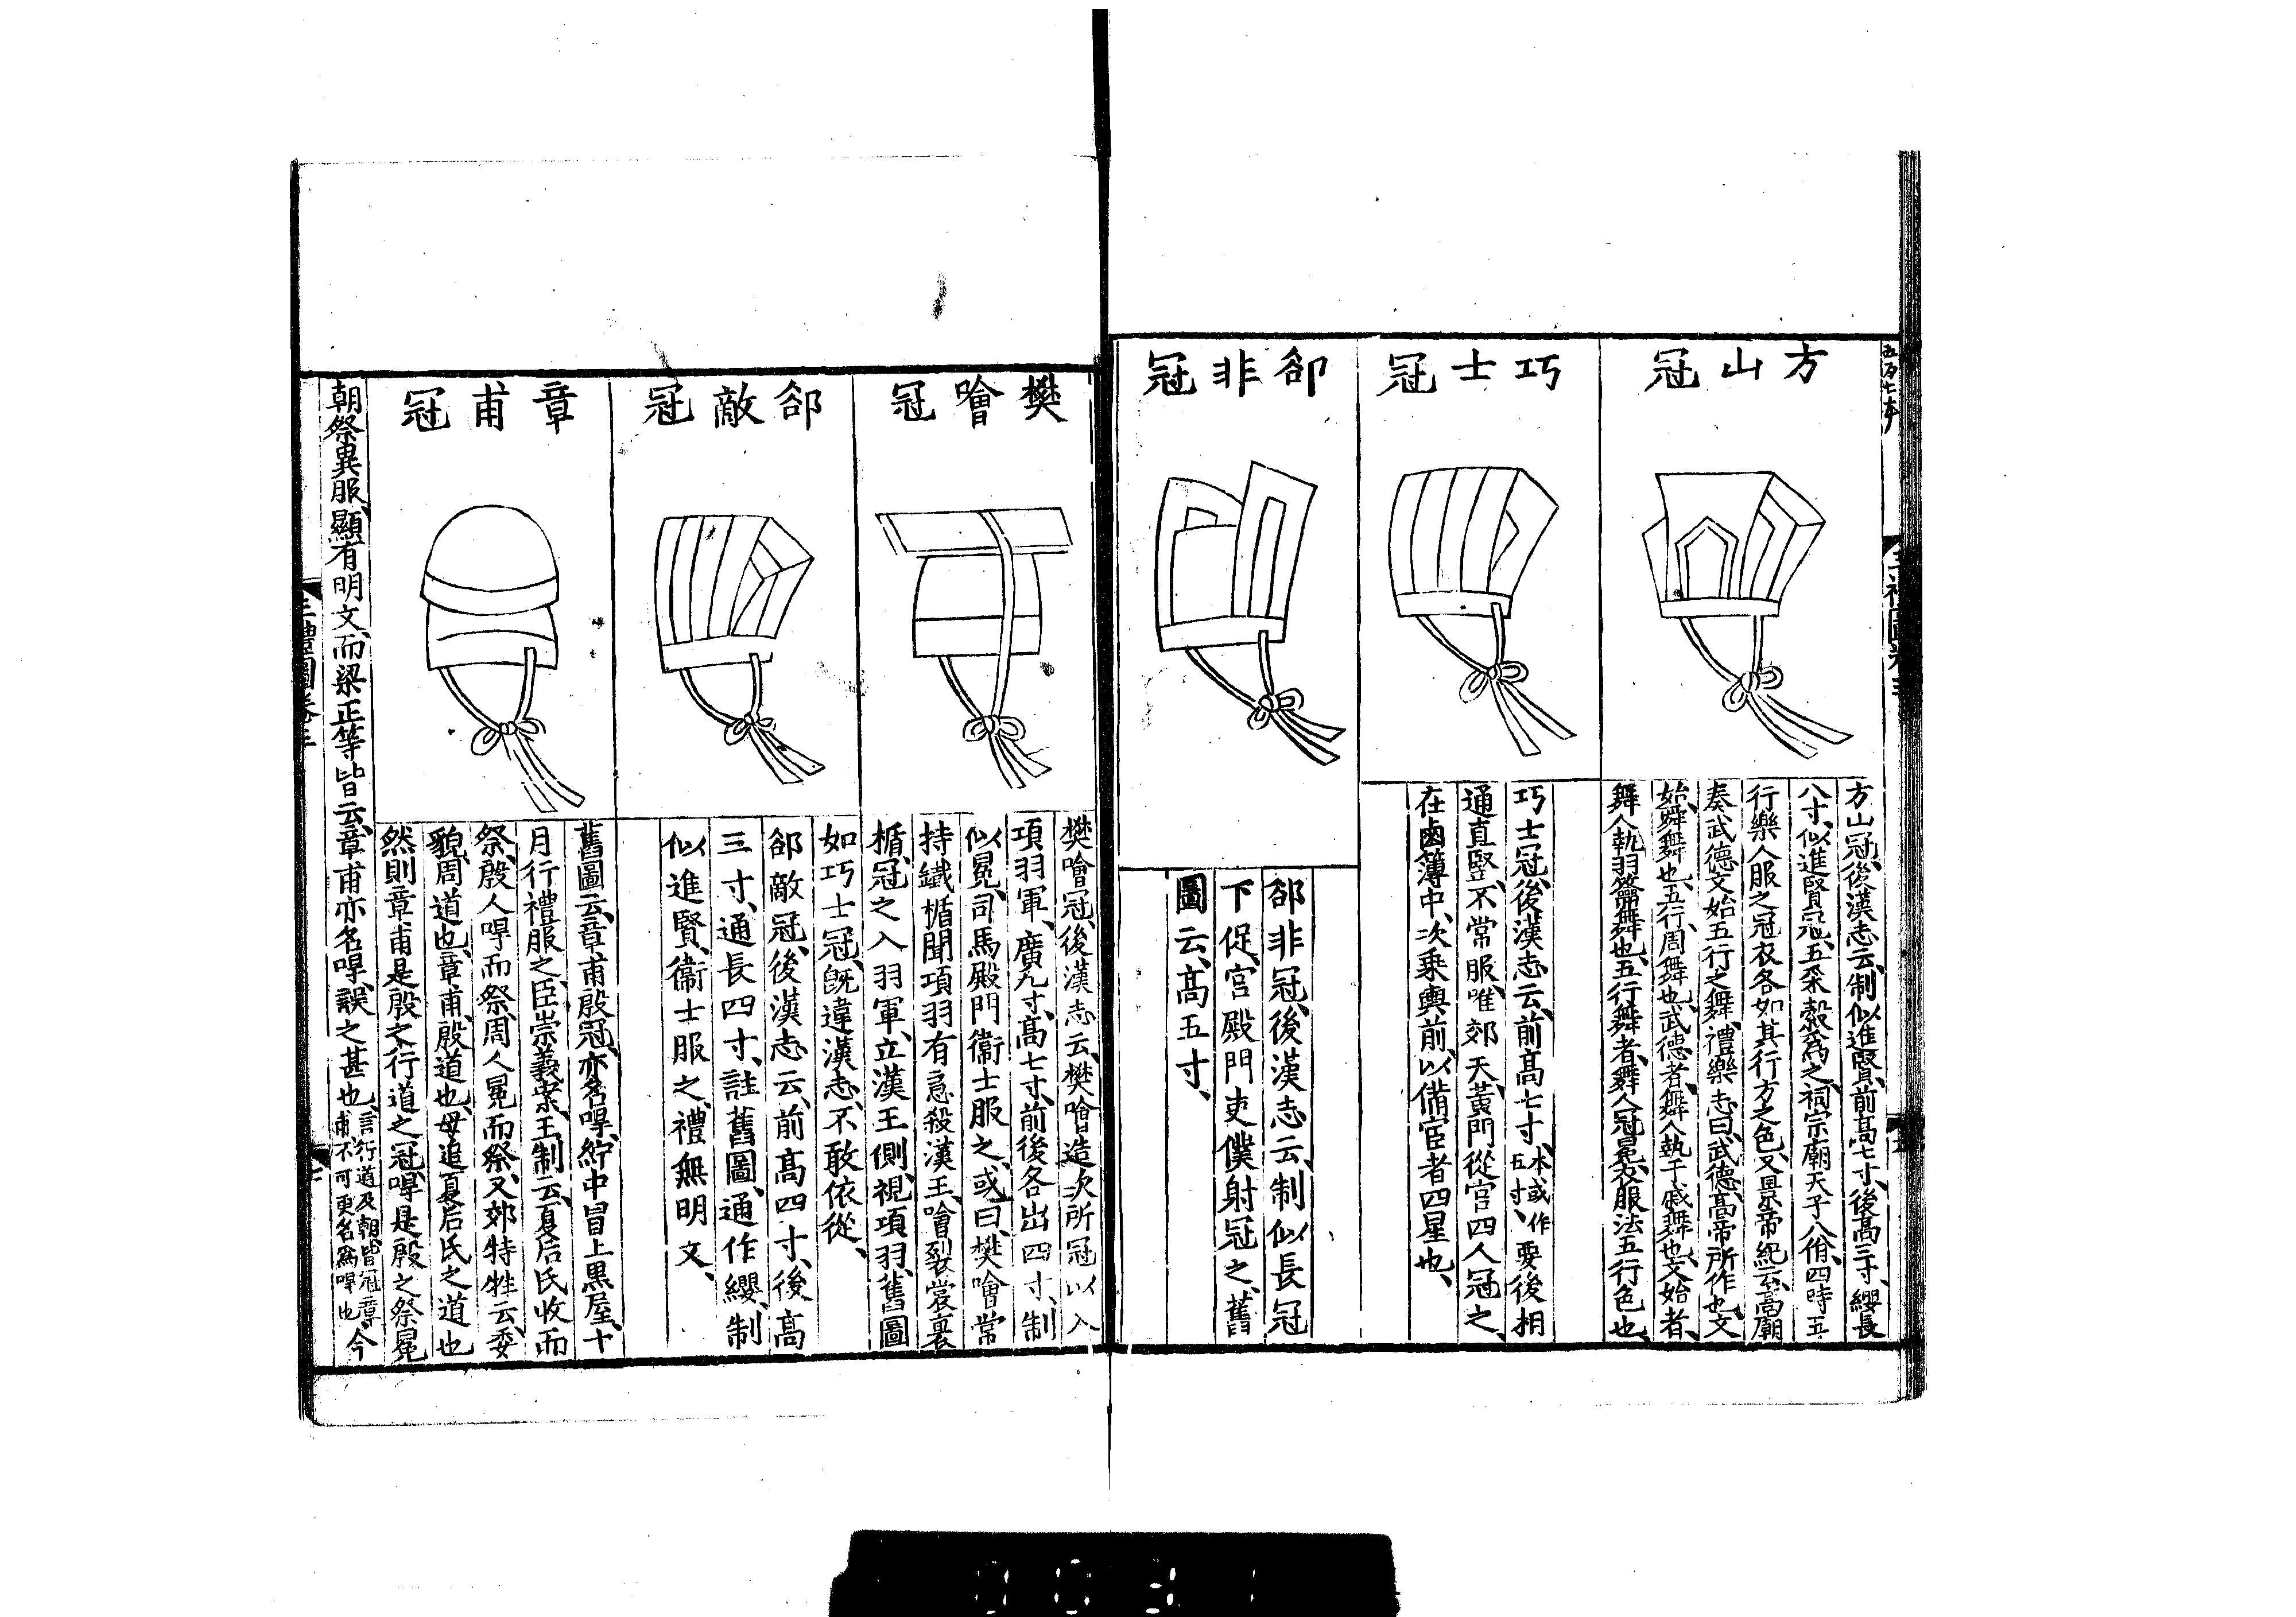 方山冠
方山冠、後漢志云、制似進賢、前高七寸、後高三寸、纓長
八寸、似進賢冠、五采縠爲之、祠宗廟天子八佾、四時五
行樂人服之冠衣各如其行方之色、又景帝紀云、高廟
奏武德文始五行之舞、禮樂志曰、武德、高帝所作也、文
始、舜舞也、五行、周舞也、武德者、舞人執干戚舞也、文始者、
舞人執羽籥舞也、五行舞者、舞人冠冕、衣服法五行色也、
巧士冠
巧士冠、後漢志云、前高七寸、本或作五寸、要後相
通直竪、不常服、唯郊天、黃門從官四人冠之、
在鹵簿中、次乘輿前、以備宦者四星也、
郤非冠
郤非冠、後漢志云、制似長冠
下促、宮殿門吏僕射冠之、舊
圖云、高五寸、
樊噲冠
樊噲冠、後漢志云、樊噲造次所冠以入
項羽軍、廣九寸、高七寸、前後各出四寸、制
似冕、司馬殿門衞士服之、或曰、樊噲常
持鐵楯聞項羽有急殺漢王、噲裂裳裹
楯、冠之入羽軍、立漢王側、視項羽、舊圖
如巧士冠、旣違漢志、不敢依從、
郤敵冠
郤敵冠、後漢志云、前高四寸、後高
三寸、通長四寸、註舊圖、通作纓、制
似進賢、衞士服之、禮無明文、
章甫冠
舊圖云、章甫殷冠、亦名冔、紵中冒上黑屋、十
月行禮服之、臣崇義案、王制云、夏后氏收而
祭、殷人冔而祭、周人冕而祭、又郊特牲云、委
貌、周道也、章甫、殷道也、母追夏后氏之道也
然則章甫是殷之行道之冠、冔是殷之祭冕
朝祭異服、顯有明文、而梁正等皆云、章甫亦名冔、誤之甚也、言行道及朝皆冠章甫不可更名爲冔也今
三禮圖卷三